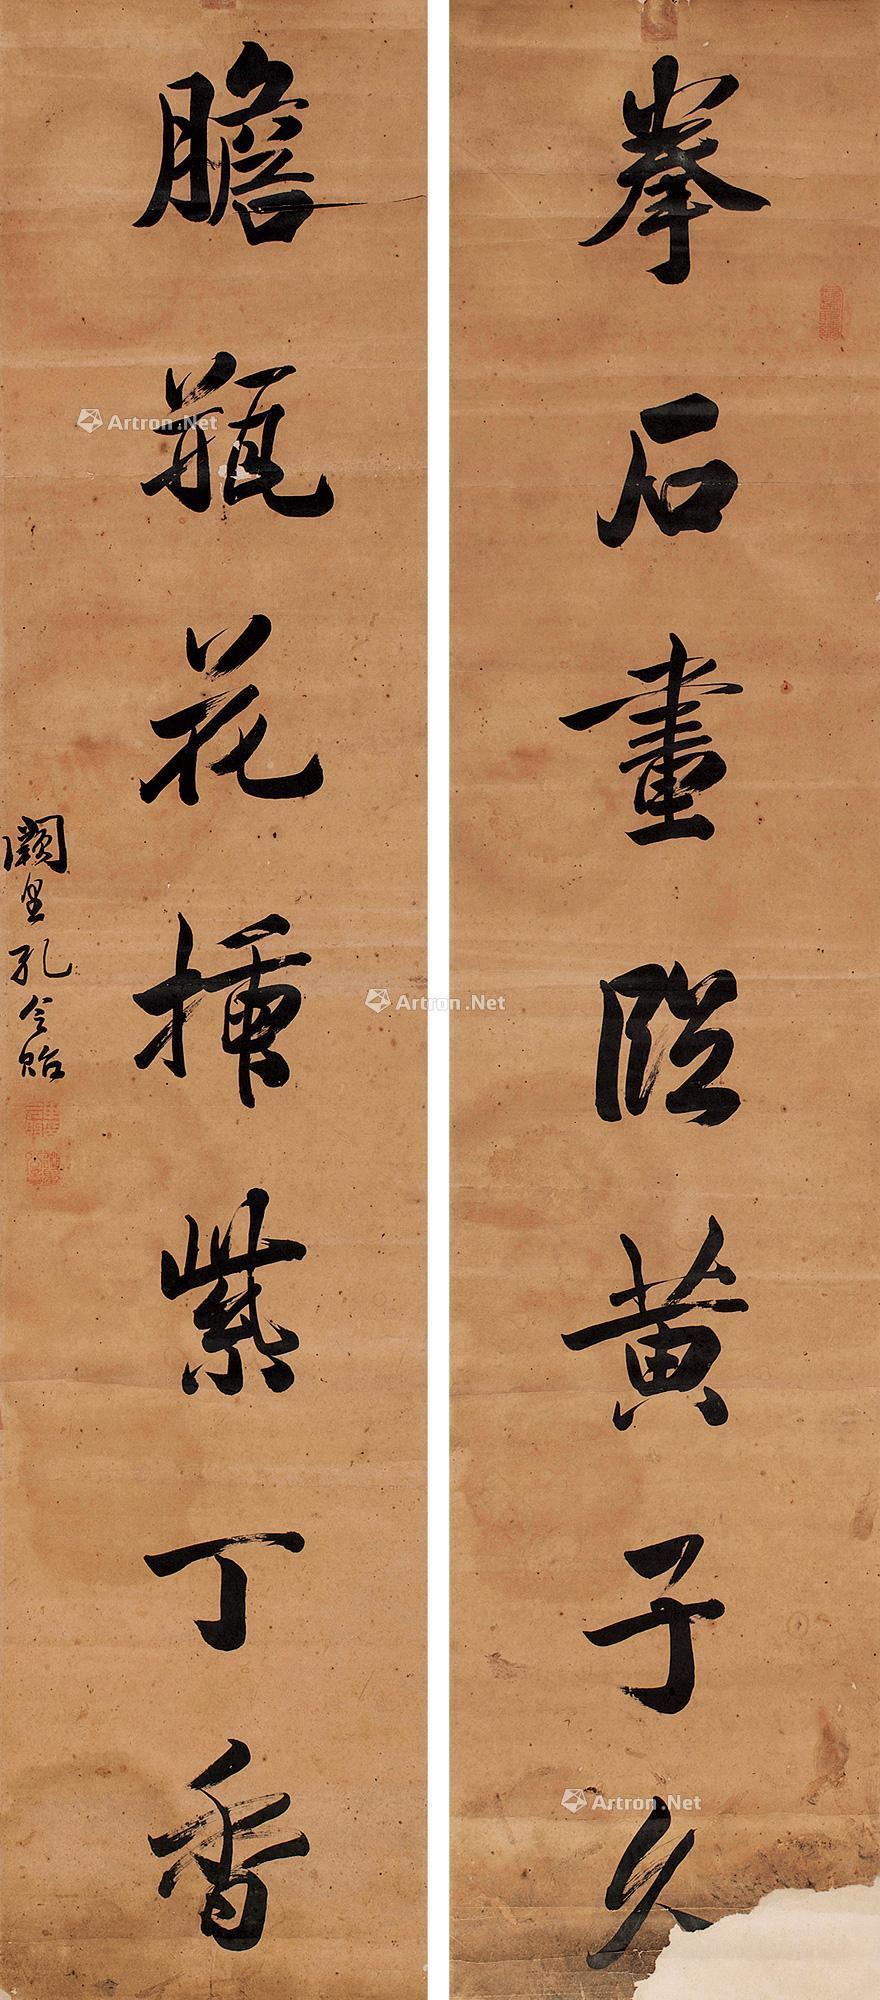 拳石畫臨黄子久
膽瓶花插紫丁香
闕里孔令貽
Artron.Net
Artron.Net
Artron.Net